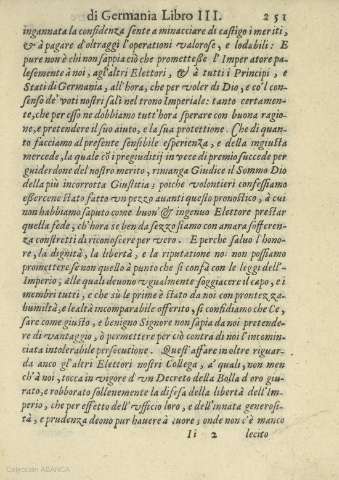 di Germania Libro III. 251
ingannata la confidenza sente a minacciare di castigo i meriti,
& à pagare d'oltraggi l'operationi valorose, e lodabili: E
pure non è chi non sappia ciò che promettesse l'Imperatore pa-
lesemente à noi, agl'altri Elettori, & à tutti i Principi, e
Stati di Germania, all'hora, che per voler di Dio, e co'l con-
senso de' voti nostri salì nel trono Imperiale: tanto certamen-
te, che per esso ne dobbiamo tutt'hora sperare con buona ragio-
ne, e pretendere il suo aiuto, e la sua protettione. Che di quan-
to facciamo al presente sensibile esperienza, e della ingiusta
mercede, la quale cō i pregiuditij in vece di premio succede per
guiderdone del nostro merito, rimanga Giudice il Sommo Dio
della più incorrotta Giustitia: poiche volontieri confessiamo
essercene stato fatto vn pezzo auanti questo pronostico, à cui
non habbiamo saputo come buon' & ingenuo Elettore prestar
quella fede, ch'hora se ben da sezzo siamo con amara sofferen-
za constretti di riconoscere per vero. E perche saluo l'hono-
re, la dignità, la libertà, e la riputatione no: non possiamo
promettere se non quello à punto che si confà con le leggi dell'-
Imperio; alle quali deuono vgualmente soggiacere il capo, e i
membri tutti, e che sù le prime è stato da noi con prontezza
humiltà, e lealtà incomparabile offerito, si confidiamo che Ce,
sare come giusto, e benigno Signore non sapia da noi pretende-
re di vantaggio, ò permettere per ciò contra di noi l'incomin-
ciata intolerabile persecutione. Quest'affare inoltre riguar-
da anco gl'altri Elettori nostri Collega, a' quali, non men
ch'à noi, tocca in vigore d'vn Decreto della Bolla d'oro giu-
rato, e roborato sollennemente la difesa della libertà dell'Im-
perio, che per effetto dell'vfficio loro, e dell'innata generosi-
tà, e prudenza deono pur hauere à cuore; onde non c'è manco
Ii 2 lecito
Colección ABANCA